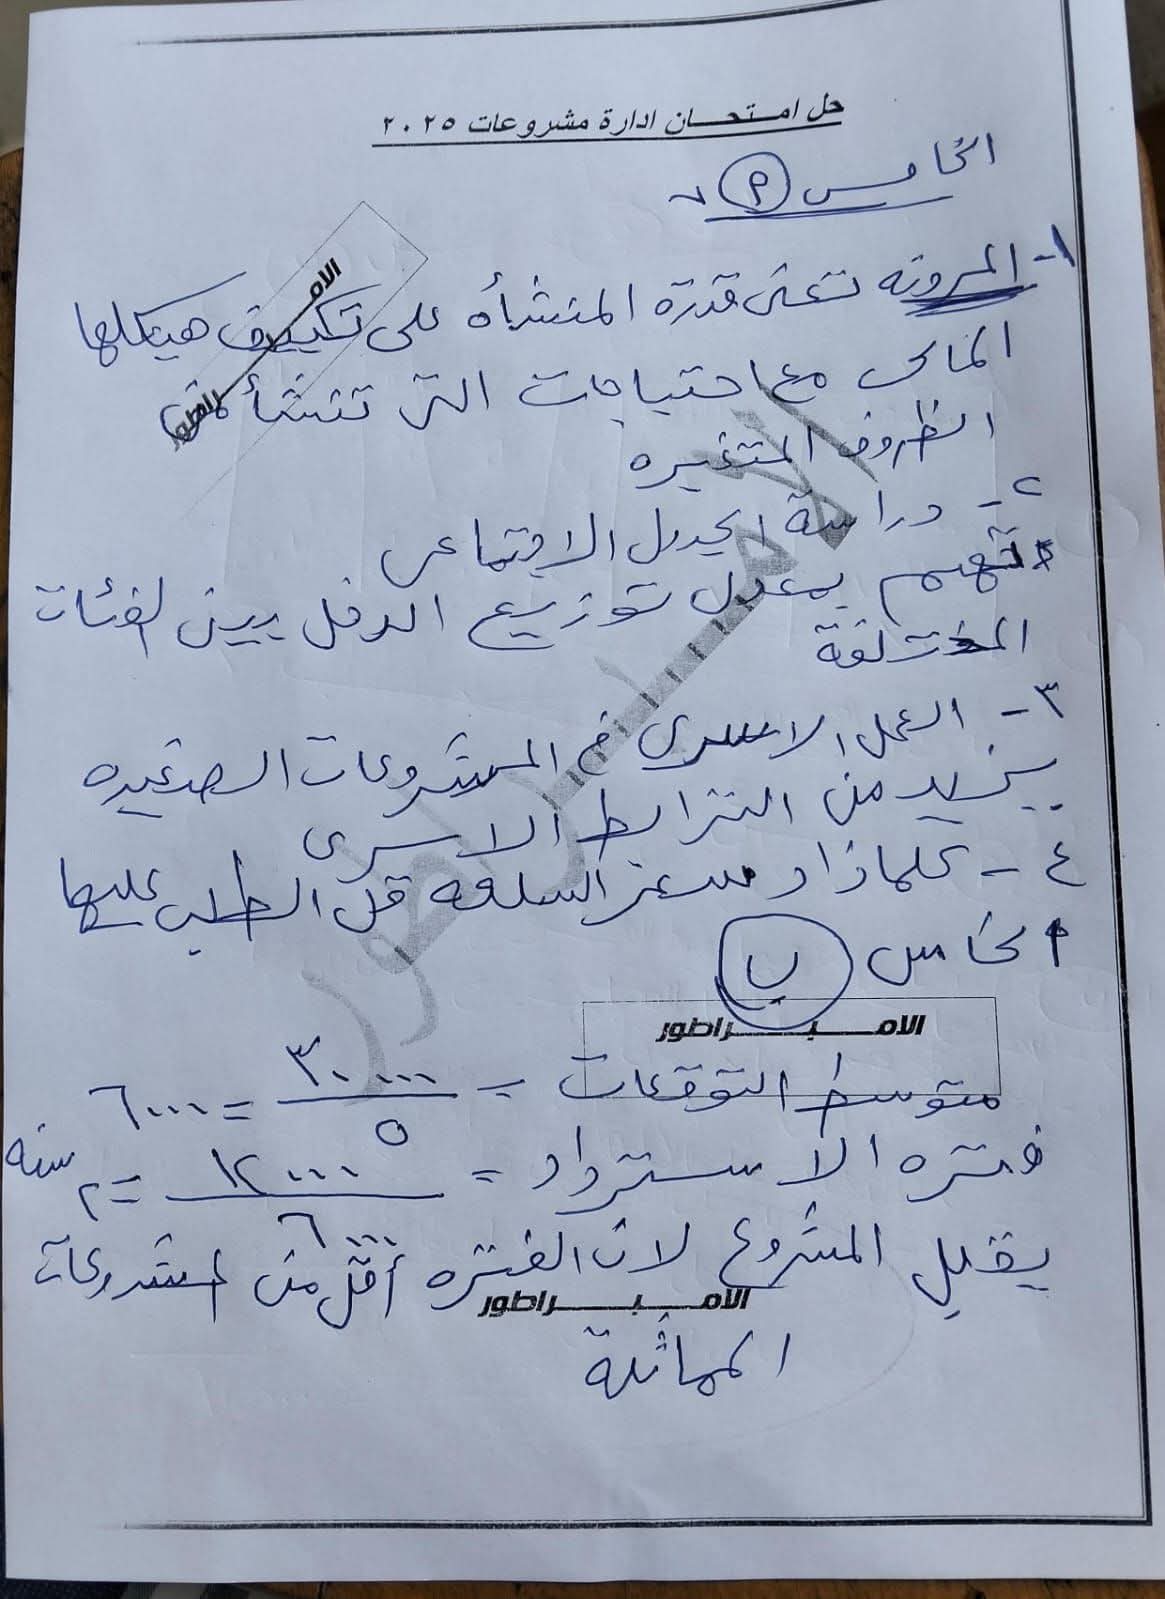 حل امتحان ادارة مشروعات ٢٠٢٥
الخامس (P)
١- المرونه تعنى قدرة المنشأه على تكييف هيكلها
المالى مع احتياجات التى تنشأ من
الظروف المتغيره
٢- دراسة الجدوى الاجتماعى
تهتم بمعدل توزيع الدخل بين الفئات
المختلفة
٣- العمل الاسرى فى المشروعات الصغيره
يزيد من الترابط الاسرى
٤- كلما زاد سعر السلعه قل الطلب عليها
الخامس (ب)
الامبراطور
متوسط التوقعات = ٣٠٠٠٠٠ / ٥ = ٦٠٠٠٠
فتره الاسترداد = ١٢٠٠٠٠ / ٦٠٠٠٠ = ٢ سنه
يقبل المشروع لان الفتره أقل من المشروعات
الامبراطور
المماثلة
الامبراطور
الامبراطور